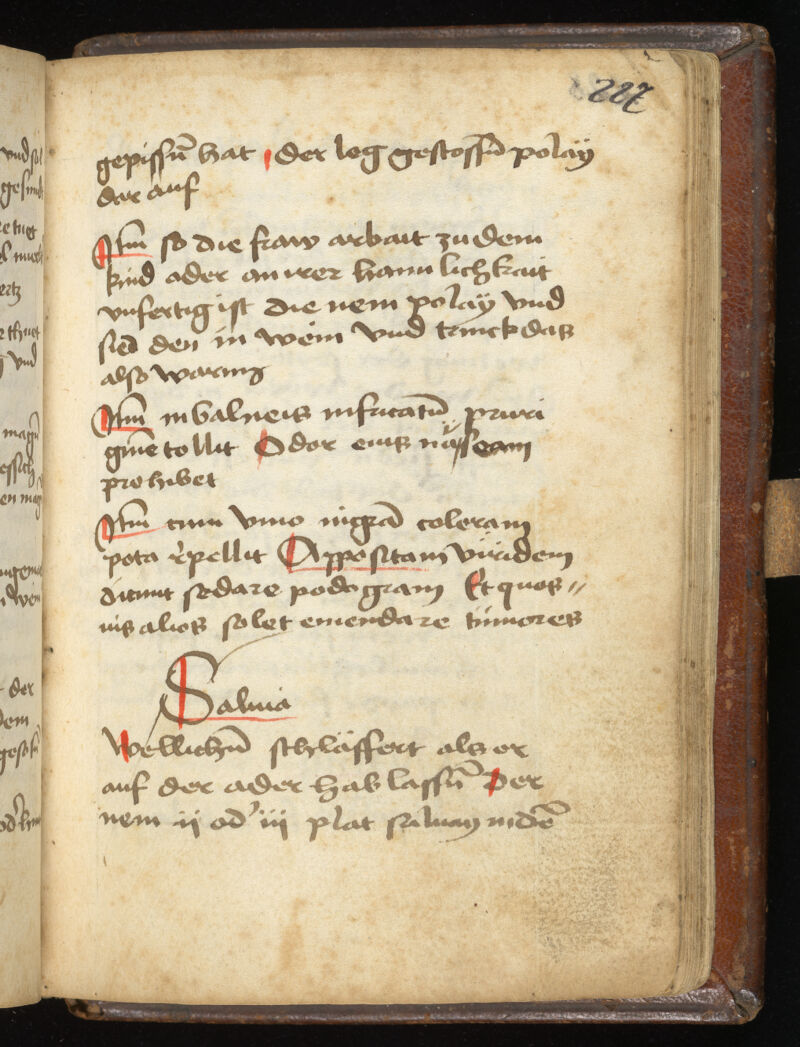 227
gepissn̄ hat der leg gestossn̄ polay
dar auf
Itm̄ so die fraw arbait zu dem
kind ader an irer haimlichkait
unfertig ist die nem polay vnd
sied den in wein vnd trinck das
also warmg
Itm̄ in balneis infricatū pruri
gine tollit Odor eius nauseam
prohibet
Itm̄ cum vino nigrā coleram
pota rͤpellit Appositam viridem
dicunt sedare podogram Et quos〃
uis alios solet emendare tumores
Saluia
Wellichn̄ schläffert als er
auf der ader hab lassn̄ Der
nem ii od' iii plat saluay in dē